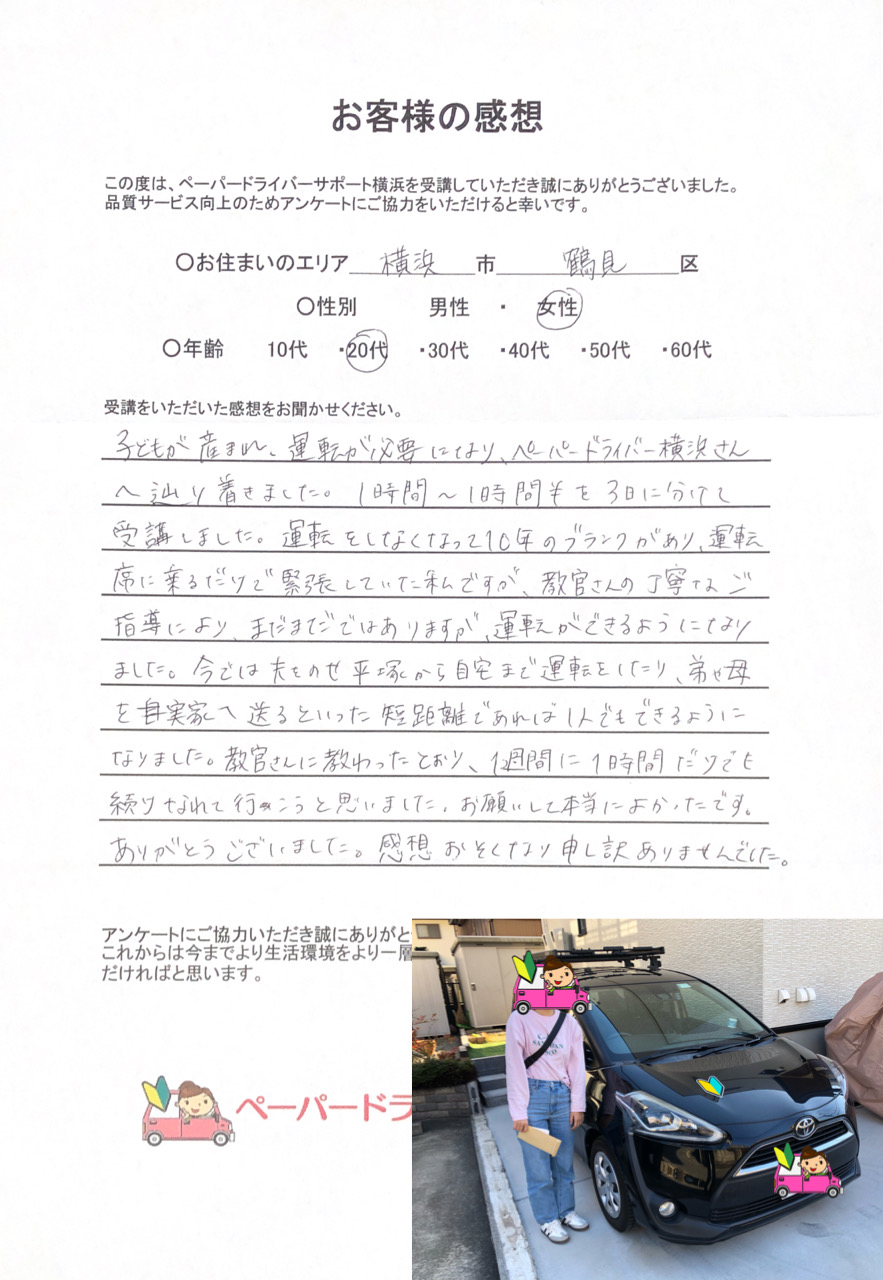 お客様の感想
この度は、ペーパードライバーサポート横浜を受講していただき誠にありがとうございました。
品質サービス向上のためアンケートにご協力をいただけると幸いです。
〇お住まいのエリア 横浜 市 鶴見 区
〇性別 男性 ・ 女性
〇年齢 10代 ・20代 ・30代 ・40代 ・50代 ・60代
受講をいただいた感想をお聞かせください。
子どもが産まれ、運転が必要になり、ペーパードライバー横浜さん
へ辿り着きました。1時間〜1時間半を3日に分けて
受講しました。運転をしなくなって10年のブランクがあり、運転
席に乗るだけで緊張していた私ですが、教官さんの丁寧なご
指導により、まだまだではありますが、運転ができるようになり
ました。今では夫をのせ平塚から自宅まで運転をしたり、弟や母
を実家へ送るといった短距離であれば1人でもできるように
なりました。教官さんに教わったとおり、1週間に1時間だけでも
続けなれて行こうと思いました。お願いして本当によかったです。
ありがとうございました。感想おそくなり申し訳ありませんでした。
アンケートにご協力いただき誠にありがと
これからは今までより生活環境をより一層
だければと思います。
ペーパードラ